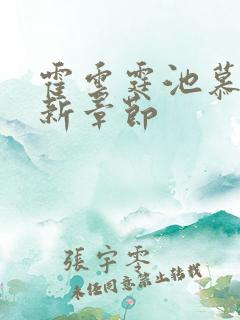 霍雲霆池慕
新章節
張宇零
未任同意禁止轉載